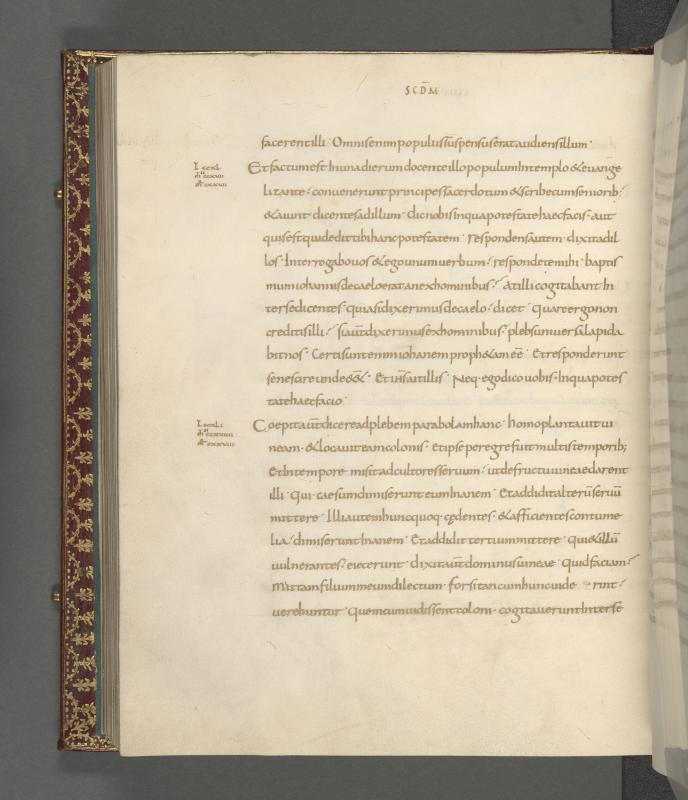 SCD̄M
facerent illi · Omnis enim populus suspensus erat audiens illum ·
Et factum est In una dierum docente illo populum In templo & euange
lizante · conuenerunt principes sacerdotum & scribe cum seniorib;
& aiunt dicentes ad illum · dic nobis In qua potestate haec facis · aut
quis est qui dedit tibi hanc potestatem · respondens autem · dixit ad il
los · Interrogabo uos & ego unum uerbum · respondete mihi · baptis
mum iohannis de caelo erat an ex hominibus · At illi cogitabant In
ter se dicentes · quia si dixerimus de caelo · dicet · Quare ergo non
creditis illi · si aūt dixerimus ex hominibus · plebs uniuersa lapida
bit nos · Certi sunt enim iohanem proph&am eē · Et responderunt
se nescire unde eē& · Et ih̄s ait illis · Neq · ego dico uobis · In qua potes
tate haec facio ·
Coepit aūt dicere ad plebem parabolam hanc · homo plantauit ui
neam · & locauit eam colonis · et ipse peregre fuit multis temporib;
Et In tempore misit ad cultores seruum · ut de fructu uineae darent
illi · Qui caesum dimiserunt eum Inanem · Et addidit alterū seruū
mittere · Illi autem hunc quoq · cędentes · & afficientes contume
lia · dimiserunt Inanem · Et addidit tertium mittere · qui & illū
uulnerantes · eiecerunt · dixit aūt dominus uineae · Quid faciam ·
Mittam filium meum dilectum · forsitan cum hunc uide rint ·
uerebuntur · Quem cum uidissent coloni · cogitauerunt Inter se